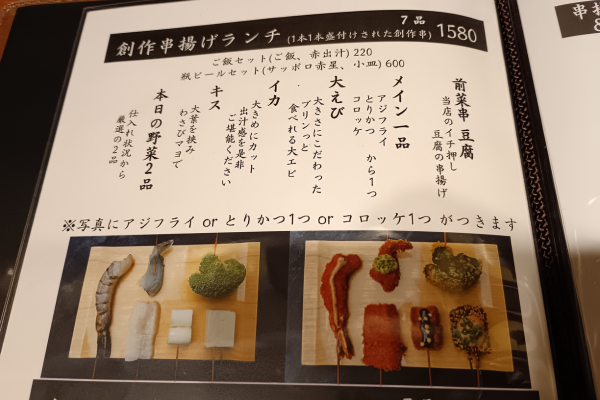 7品
創作串揚げランチ (1本1本盛付けされた創作串) 1580
ご飯セット(ご飯、赤出汁) 220
瓶ビールセット(サッポロ赤星、小皿) 600
前菜串 豆腐
当店のイチ押し
豆腐の串揚げ
メイン一品
アジフライ
とりかつ から1つ
コロッケ
大えび
大きさにこだわった
プリンっと
食べれる大エビ
イカ
大きめにカット
出汁感を是非
ご堪能ください
キス
大葉を挟み
わさびマヨで
本日の野菜2品
仕入れ状況から
厳選の2品
※写真にアジフライ or とりかつ1つ or コロッケ1つ がつきます